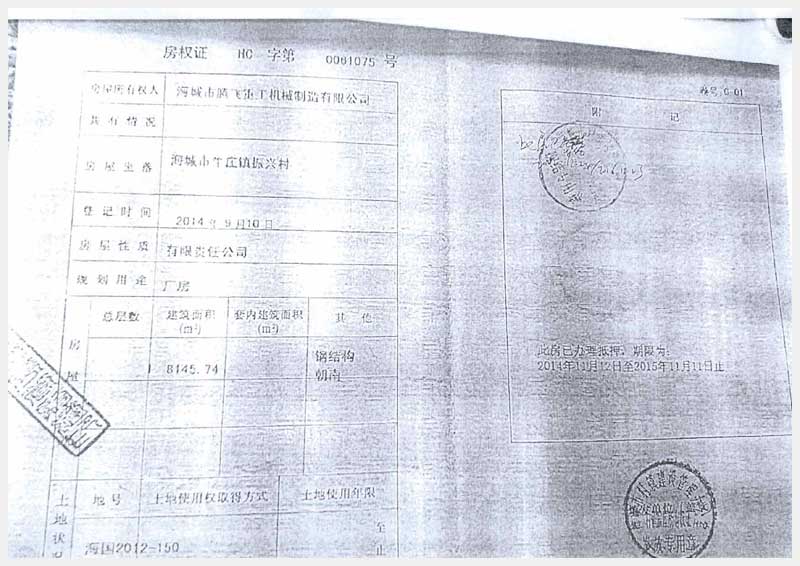 房权证 HC 字第 0061075 号
房屋所有权人 海城市腾飞重工机械制造有限公司
共有情况
房屋坐落 海城市牛庄镇振兴村
登记时间 2014年9月10日
房屋性质 有限责任公司
规划用途 厂房
总层数 建筑面积(m²) 套内建筑面积(m²) 其他
房屋
1 8145.74 钢结构
朝南
土地状况
地号 土地使用权取得方式 土地使用年限
海国2012-150 至
止
卷号:G-01
附 记
此房已办理抵押，期限为:
2014年11月12日至2015年11月11日止